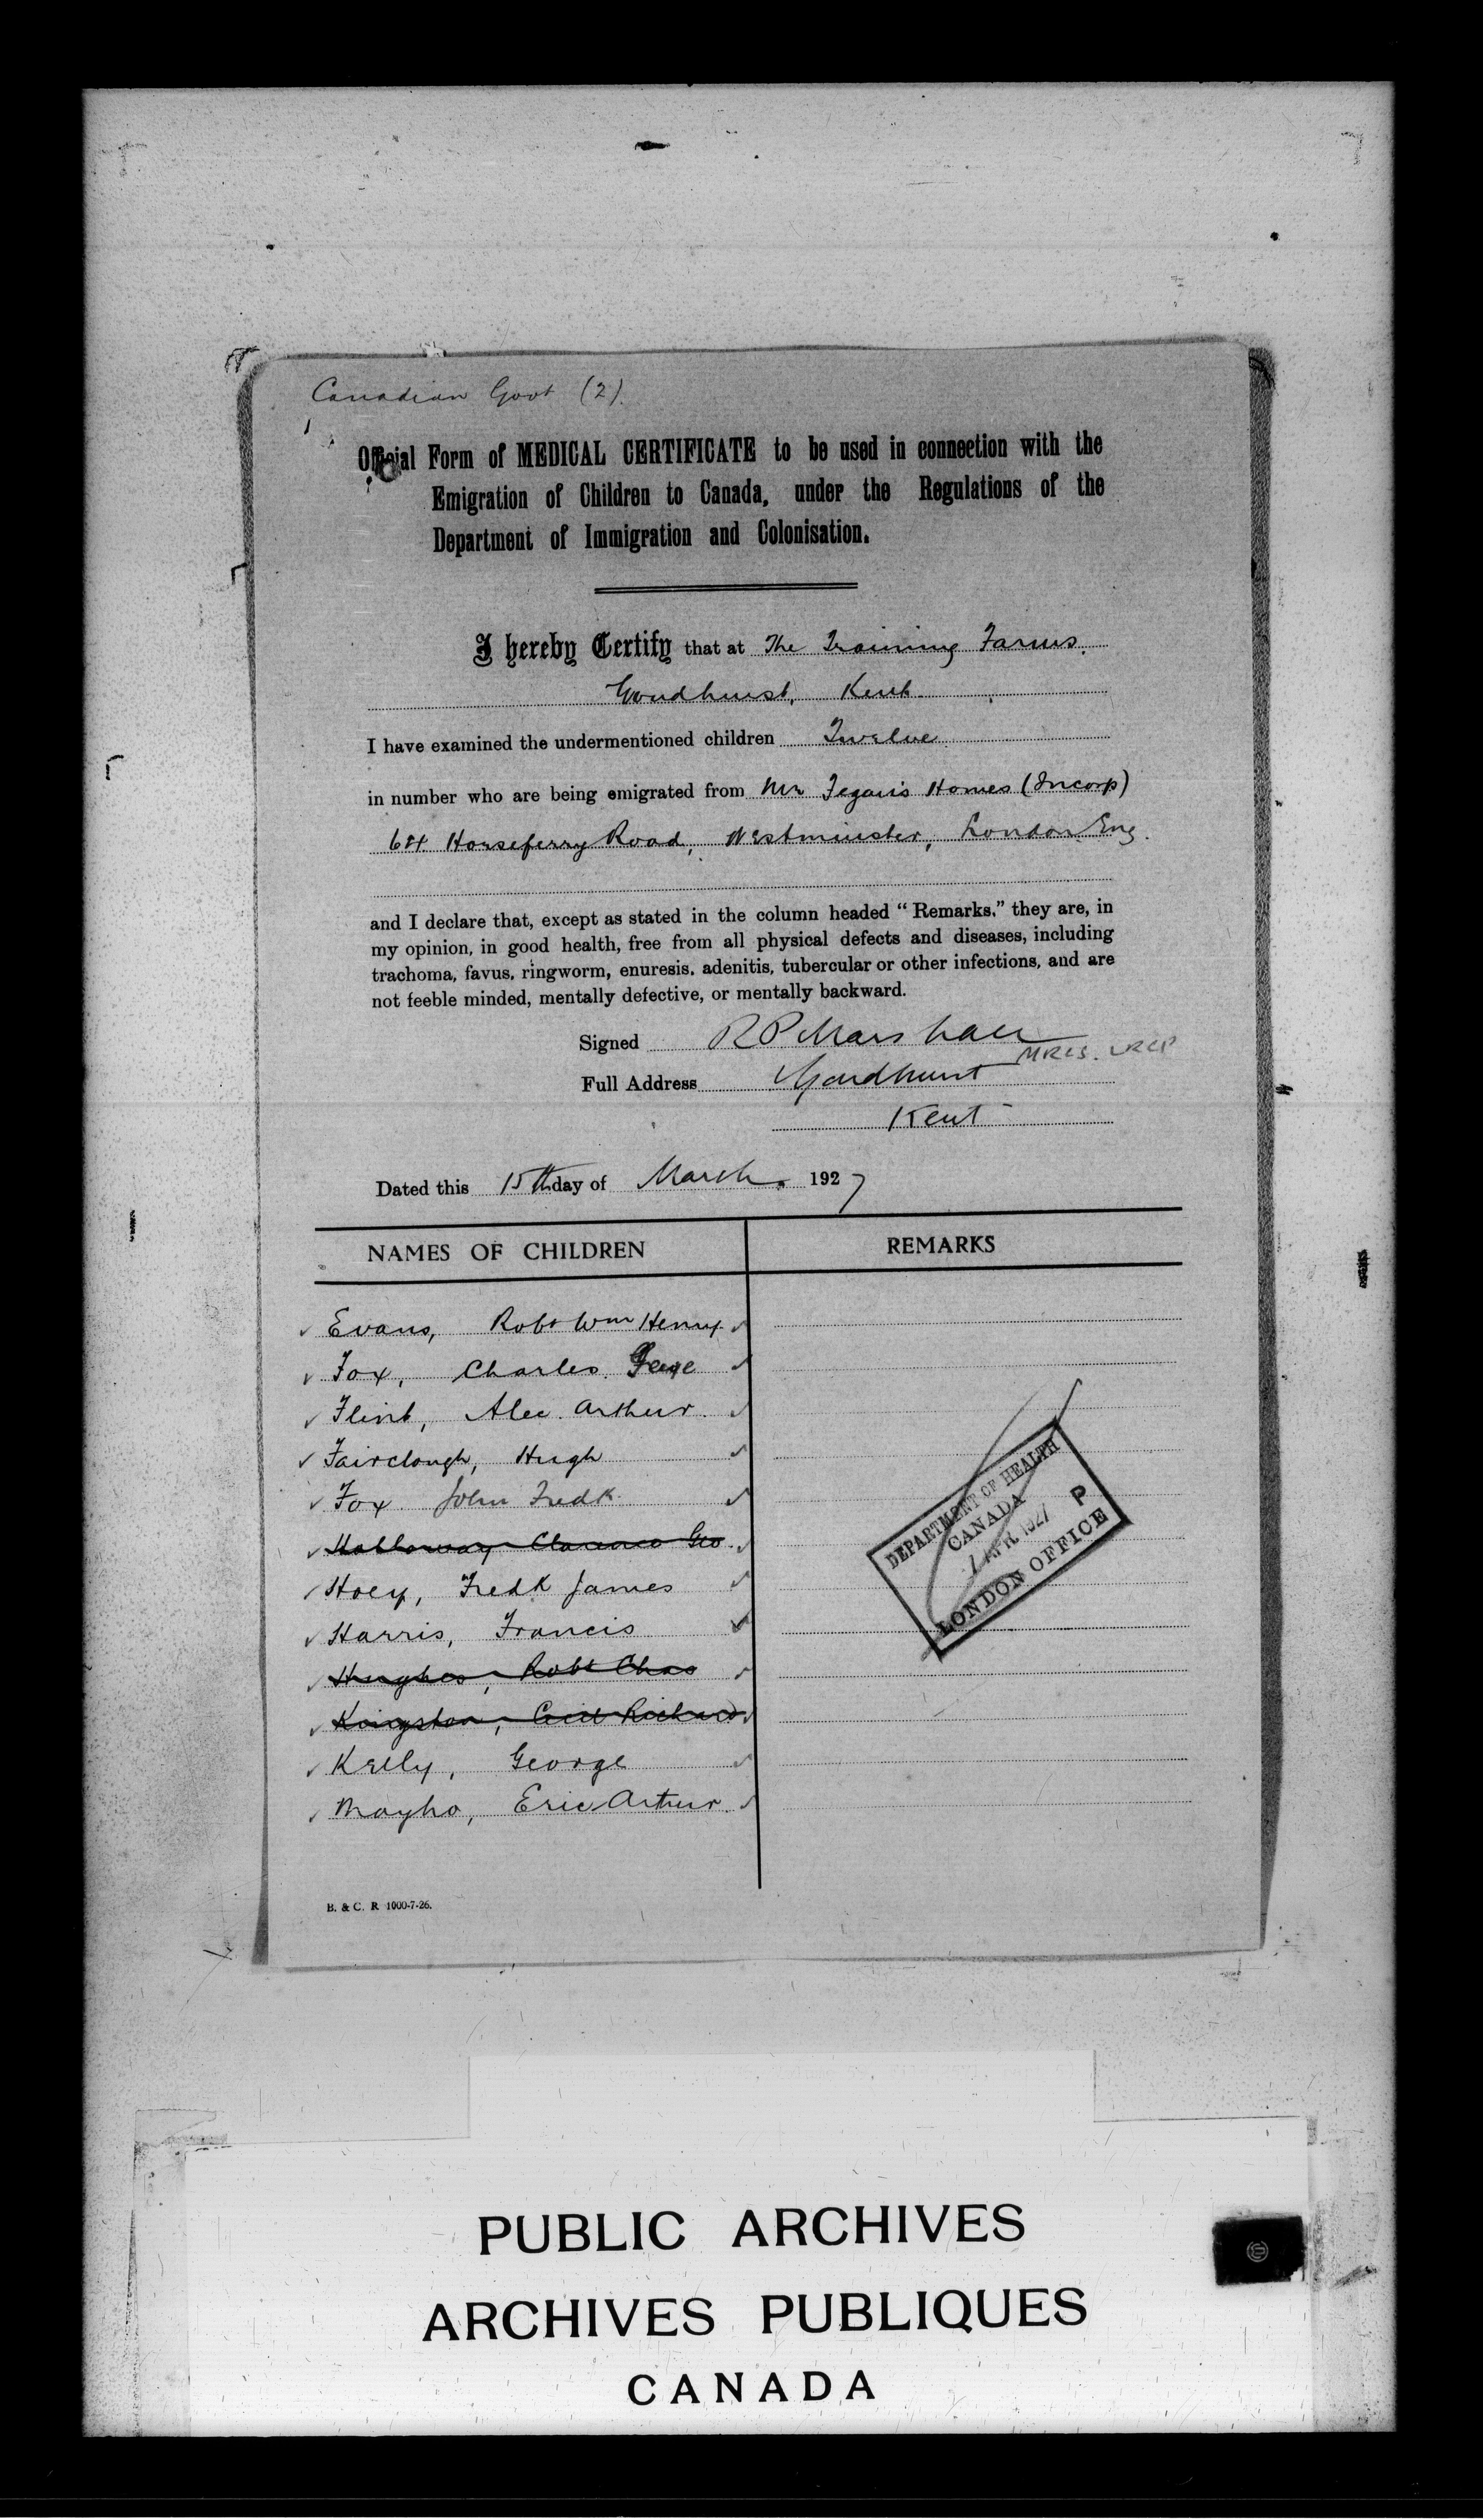 Canadian Govt (2).
Official Form of MEDICAL CERTIFICATE to be used in connection with the
Emigration of Children to Canada, under the Regulations of the
Department of Immigration and Colonisation.
I hereby Certify that at The Training Farms.
Goudhurst, Kent.
I have examined the undermentioned children Twelve
in number who are being emigrated from Mr Fegan's Homes (Incorp)
64 Horseferry Road, Westminster, London Eng.
and I declare that, except as stated in the column headed "Remarks," they are, in
my opinion, in good health, free from all physical defects and diseases, including
trachoma, favus, ringworm, enuresis, adenitis, tubercular or other infections, and are
not feeble minded, mentally defective, or mentally backward.
Signed R P Marshall
MRCS. LRCP
Full Address Goudhurst
Kent
Dated this 15th day of March. 1927
NAMES OF CHILDREN REMARKS
Evans, Robt Wm Henry
Fox, Charles
Flint, Alec. Arthur.
Fairclough, Hugh
Fox John Fredk
Holloway Clarence Geo.
Hoey, Fredk James
Harris, Francis
Hughes, Robt Chas
Kingston, Cecil Richard
Kelly, George
Mayho, Eric Arthur.
DEPARTMENT OF HEALTH
CANADA
APR 1927 P
LONDON OFFICE
B. & C. R 1000-7-26.
PUBLIC ARCHIVES
ARCHIVES PUBLIQUES
CANADA